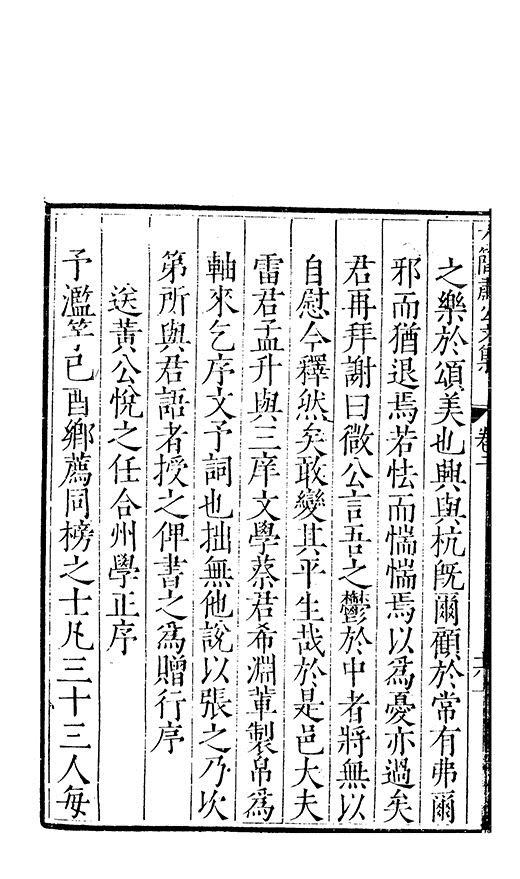 簡肅公文集
卷二
之樂於頌美也興與杭旣爾顧於常有弗爾
邪而猶退焉若怯而惴惴焉以爲憂亦過矣
君再拜謝曰微公言吾之鬱於中者將無以
自慰今釋然矣敢變其平生哉於是邑大夫
雷君孟升與三庠文學蔡君希淵輩製帛爲
軸來乞序文予詞也拙無他說以張之乃次
第所與君語者授之俾書之爲贈行序
送黃公悅之任合州學正序
予濫竽己酉鄉薦同榜之士凡三十三人每